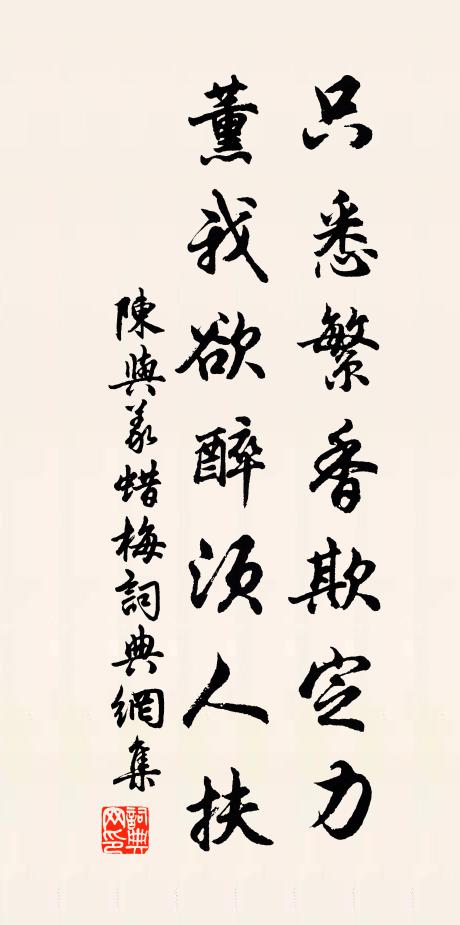 只悉繁香欺定力
薰我欲醉須人扶
陳與義蜡梅詞典網集
詞典网印